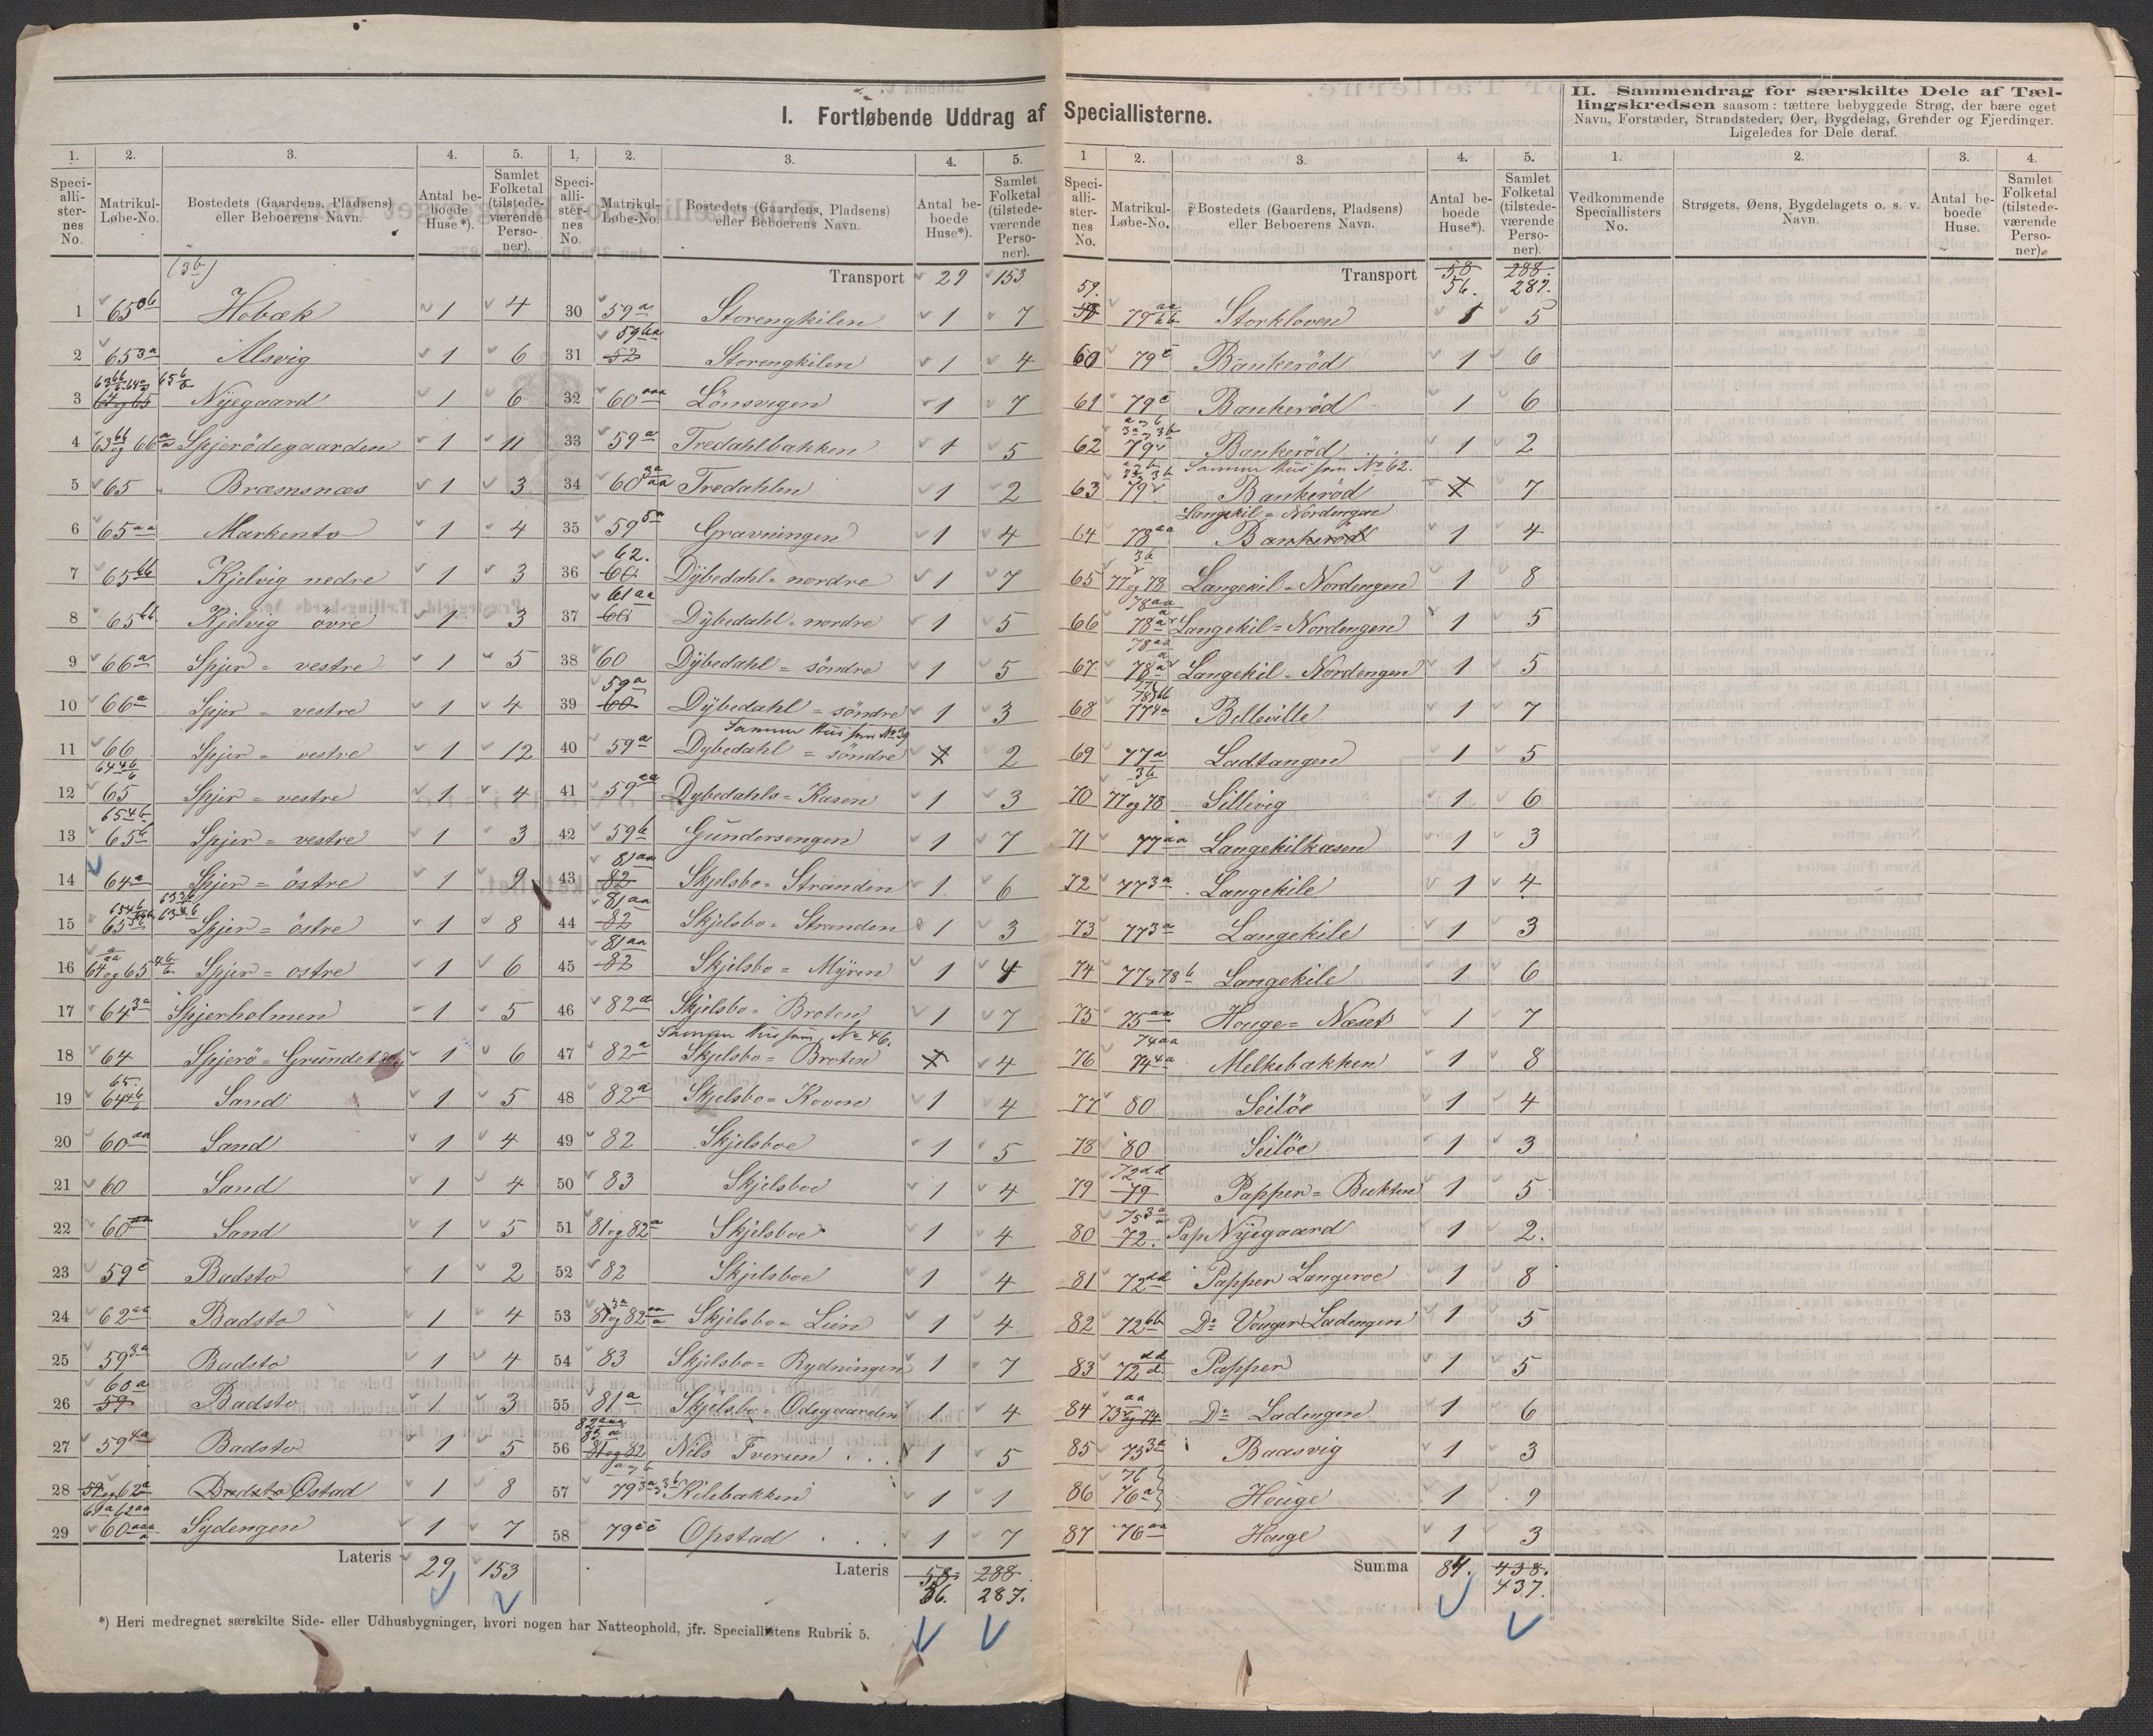 I. Fortløbende Uddrag af Speciallisterne.
1. 2. 3. 4. 5.
Specialli-sternes No. Matrikul-Løbe-No. Bostedets (Gaardens, Pladsens) eller Beboerens Navn. Antal beboede Huse*). Samlet Folketal (tilstedeværende Personer).
(3b)
1 65 Hobæk 1 4
2 65 3a Alsvig 1 6
3 Nyegaard 1 6
4 Spjerödegaarden 1 11
5 65 Bræmsnæs 1 3
6 65 aa Markento 1 4
7 65 bb Kjelvig nedre 1 3
8 65 bb Kjelvig övre 1 3
9 66 a Spjer = vestre 1 5
10 66 a Spjer = vestre 1 4
11 66 Spjer = vestre 1 12
12 65 Spjer = vestre 1 4
13 65 b Spjer = vestre 1 3
14 64 a Spjer = östre 1 9
15 Spjer = östre 1 8
16 64 og 65 Spjer = ostre 1 6
17 64 3a Spjerholmen 1 5
18 64 Spjerö = Grundet 1 6
19 Sand 1 5
20 60 aa Sand 1 4
21 60 Sand 1 4
22 60 aa Sand 1 5
23 59 c Badsto 1 2
24 62 aa Badsto 1 4
25 59 3a Badsto 1 4
26 60 a 59 Badsto 1 3
27 59 4a Badsto 1 5
28 59 og 62 a Badsto Ostad 1 8
29 60 aaa Sydengen 1 7
Lateris 29 153
*) Heri medregnet særskilte Side- eller Udhusbygninger, hvori nogen har Natteophold, jfr. Speciallistens Rubrik 5.
1. 2. 3. 4. 5.
Specialli-sternes No. Matrikul-Løbe-No. Bostedets (Gaardens, Pladsens) eller Beboerens Navn. Antal beboede Huse*). Samlet Folketal (tilstedeværende Personer).
Transport 29 153
30 59 a Storengkilen 1 7
31 59 52 Storengkilen 1 4
32 60 aaa Lönsvigen 1 7
33 59 a Tredahlbakken 1 5
34 60 3a aa Tredahlen 1 2
35 59 5a Gravningen 1 4
36 62. 60 Dÿbedahl = nordre 1 7
37 61 aa 60 Dÿbedahl = nordre 1 5
38 60 Dÿbedahl = söndre 1 5
39 59 a 60 Dÿbedahl = söndre 1 3
Samme Hus som No 39
40 59 a Dybedahl = söndre 1 2
41 59 aa Dybedahls = Kasen 1 3
42 59 b Gundersengen 1 7
43 81 aa 82 Skjelsbo = Stranden 1 6
44 81 aa 82 Skjelsbo = Stranden 1 3
45 81 aa 82 Skjelsbo = Mÿren 1 4
46 82 a Skjelsbo = Broten 1 7
Samme Hus som No 46.
47 82 a Skjelsbo = Broten 1 4
48 82 a Skjelsbo = Roven 1 4
49 82 Skjelsboe 1 5
50 83 Skjelsboe 1 4
51 81 og 82 a Skjelsboe 1 4
52 82 Skjelsboe 1 4
53 81 og 82 Skjelsbo = Lien 1 4
54 83 Skjelsbo = Rydningen 1 7
55 81 a Skjelsbo = Odegaarden 1 4
56 81 og 82 Nils Iversen 1 5
57 79 Kilebakken 1 1
58 79 Opstad 1 7
Lateris 58 288
56. 287.
1 2. 3. 4. 5.
Specialli-sternes No. Matrikul-Løbe-No. Bostedets (Gaardens, Pladsens) eller Beboerens Navn. Antal beboede Huse*). Samlet Folketal (tilstedeværende Personer).
Transport 58 288.
56. 287.
59. 79 aa bb Storkloven 1 5
60 79 c Bankeröd 1 6
61 79 c Bankeröd 1 6
62 79 Bankeröd 1 2
Samme Hus som No 62.
63 79 Bankeröd 1 7
Langekil = Nordengen
64 78 aa Bankeröd 1 4
65 77 og 78 Langekil = Nordengen 1 8
66 78 aa 78 a Langekil = Nordengen 1 5
67 78 aa 78 a Langekil = Nordengen 1 5
68 77 4a Belleville 1 7
69 77 a Ladtangen 1 5
70 77 og 78 Sillivig 1 6
71 77 aa Langekilkasen 1 3
72 77 3a Langekile 1 4
73 77 3a Langekile 1 3
74 77 78 b Langekile 1 6
75 75 aa Houge = Næset 1 7
76 74 aa 74 4a Melkebakken 1 8
77 80 Seilöe 1 4
78 80 Seilöe 1 3
79 72 dd 79 Papper = Bukten 1 5
80 75 3a 72. Pap Nÿegaard 1 2.
81 72 dd Papper Langeroe 1 8
82 72 bb Do Vouger Ladengen 1 5
83 72 dd d Papper 1 5
84 73 og 74 Do Ladengen 1 6
85 73 3a Baasvig 1 3
86 76 76 a Houge 1 9
87 76 aa Houge 1 3
Summa 84. 438.
437.
II. Sammendrag for særskilte Dele af Tællingskredsen saasom: tættere bebyggede Strøg, der bære eget Navn, Forstæder, Strandsteder, Øer, Bygdelag, Grender og Fjerdinger. Ligeledes for Dele deraf.
1. 2. 3. 4.
Vedkommende Speciallisters No. Strøgets, Øens, Bygdelagets o. s. v. Navn. Antal beboede Huse. Samlet Folketal (tilstedeværende Personer).